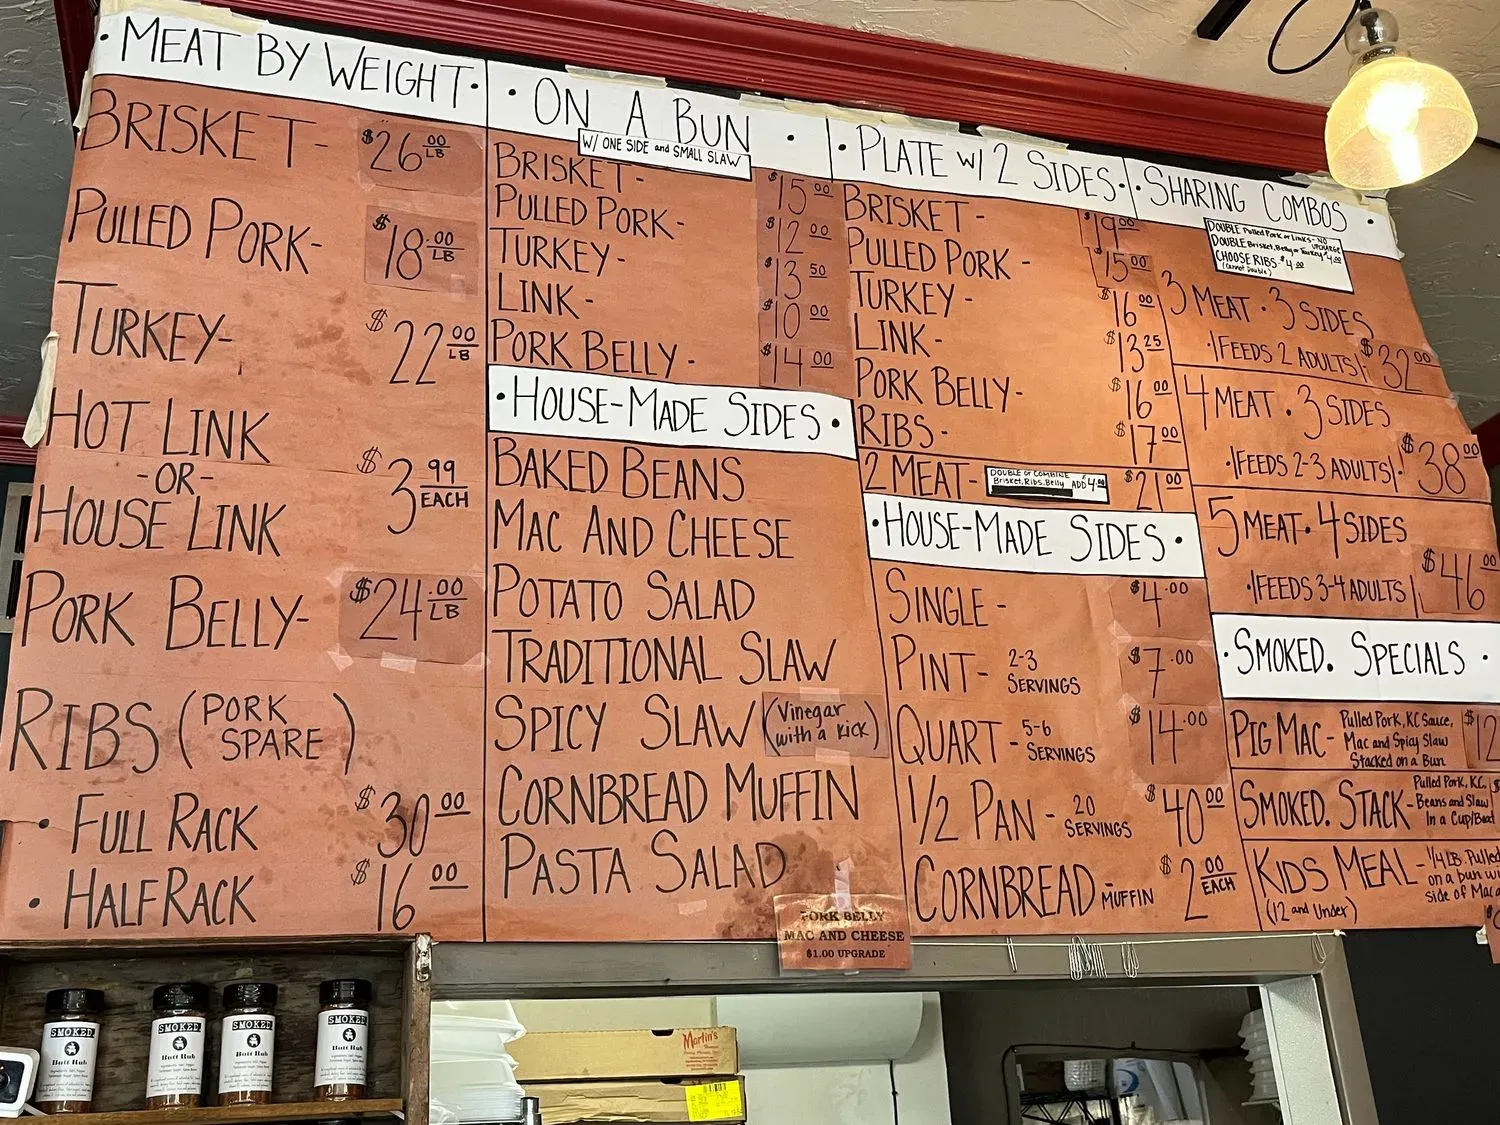 · MEAT BY WEIGHT ·
BRISKET - $26.00 LB
PULLED PORK - $18.00 LB
TURKEY - $22.00 LB
HOT LINK
-OR-
HOUSE LINK
$3.99 EACH
PORK BELLY - $24.00 LB
RIBS (PORK SPARE)
· FULL RACK $30.00
· HALF RACK $16.00
· ON A BUN ·
W/ ONE SIDE and SMALL SLAW
BRISKET - $15.00
PULLED PORK - $12.00
TURKEY - $13.50
LINK - $10.00
PORK BELLY - $14.00
· HOUSE-MADE SIDES ·
BAKED BEANS
MAC AND CHEESE
POTATO SALAD
TRADITIONAL SLAW
SPICY SLAW (Vinegar with a kick)
CORNBREAD MUFFIN
PASTA SALAD
PORK BELLY
MAC AND CHEESE
$1.00 UPGRADE
· PLATE W/ 2 SIDES ·
BRISKET - $19.00
PULLED PORK - $15.00
TURKEY - $16.00
LINK - $13.25
PORK BELLY - $16.00
RIBS - $17.00
2 MEAT - $21.00
DOUBLE or COMBINE
Brisket, Ribs, Belly ADD $4.00
· HOUSE-MADE SIDES ·
SINGLE - $4.00
PINT - 2-3 SERVINGS $7.00
QUART - 5-6 SERVINGS $14.00
1/2 PAN - 20 SERVINGS $40.00
CORNBREAD MUFFIN - $2.00 EACH
· SHARING COMBOS
DOUBLE Pulled Pork or Links - NO UPCHARGE
DOUBLE Brisket, Belly or Turkey $4.00
CHOOSE RIBS $4.00
(Cannot Double)
3 MEAT · 3 SIDES
·|FEEDS 2 ADULTS|· $32.00
4 MEAT · 3 SIDES
·|FEEDS 2-3 ADULTS|· $38.00
5 MEAT · 4 SIDES
·|FEEDS 3-4 ADULTS| $46.00
· SMOKED. SPECIALS ·
PIG MAC - Pulled Pork, KC Sauce, $12
Mac and Spicy Slaw
Stacked on a Bun
SMOKED. STACK - Pulled Pork, KC,
Beans and Slaw
In a Cup/Boat
KIDS MEAL - 1/4 LB. Pulled
on a bun
side of Mac
(12 and Under)
SMOKED.
Butt Rub
SMOKED.
Butt Rub
SMOKED.
Butt Rub
SMOKED.
Butt Rub
Martin's